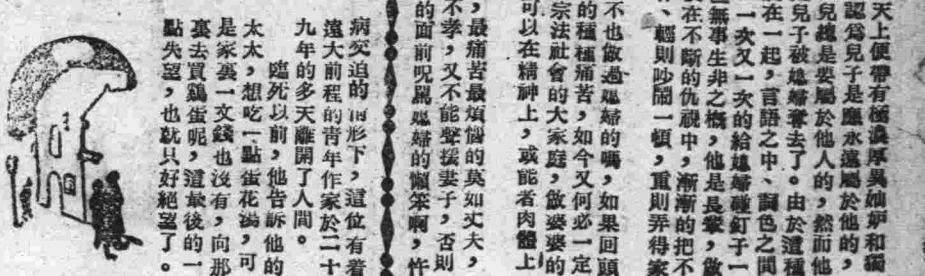 天上便帶有極濃厚異妯妒和獨
認爲兒子是應永遠屬於他的，
兒總是要屬於他人的，然而他
兒子被媳婦奪去了。由於這種
在一起，言語之中、詞色之間
一次又一次的給媳婦碰釘子一
無事生非之概，他是是輩，做
在不斷的仇視中，漸漸的把不
、輕則吵鬧一頓，重則弄得家
不也做過媳婦的嗎，如果回頭
的種種痛苦，如今又何必一定
宗法社會的大家庭，做婆婆的
可以在精神上，或能者肉體上
，最痛苦最煩惱的莫如丈夫，
不孝，又不能聲援妻子，否則
的面前呪罵媳婦的懶笨啊，忤
病交迫的情形下，這位有着
遠大前程的靑年作家於二十
九年的冬天離開了人間。
臨死以前，他告訴他的
太太，想吃一點蛋花湯，可
是家裏一文錢也沒有，向那
裏去買鷄蛋呢，這最後的一
點失望，也就只好絕望了。